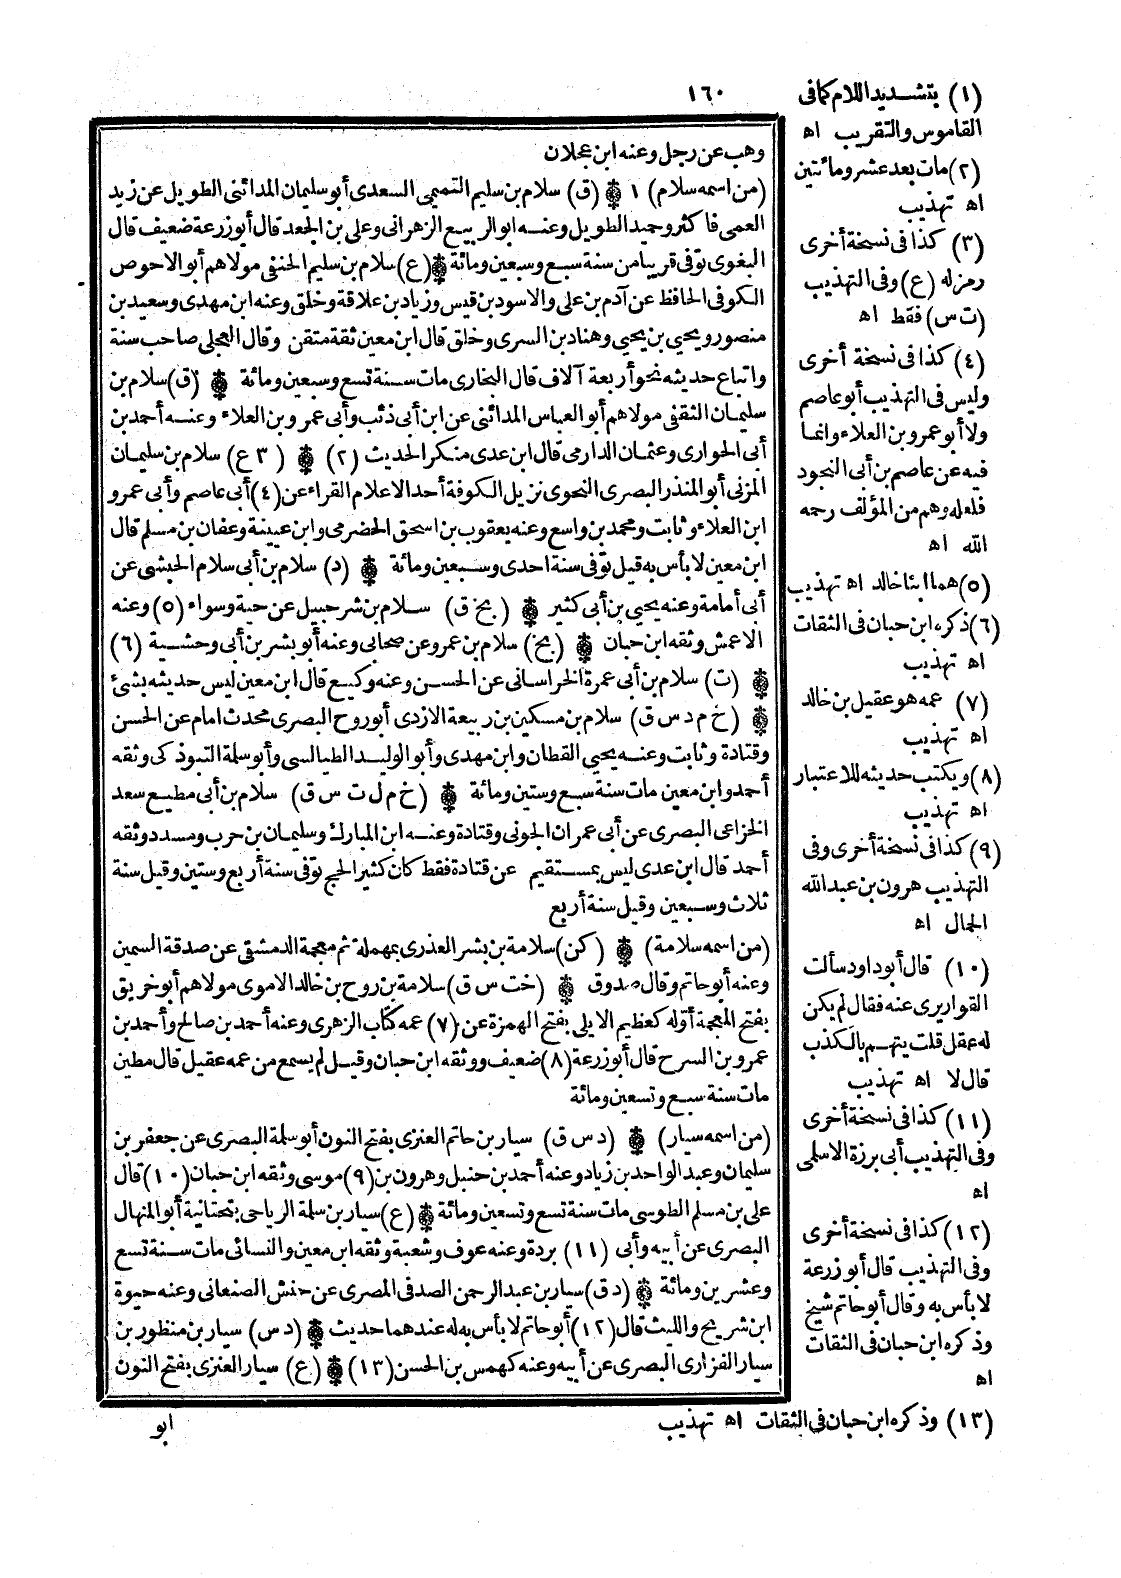 ١٦٠
وهب عن رجل وعنه ابن عجلان
(من اسمه سلام) ١ (ق) سلام بن سليم التميمي السعدى أبو سليمان المدائنى الطويل عن زيد
العمى فاكثر وحميد الطويل وعنه ابو الربيع الزهرانى وعلى بن الجعد قال أبو زرعة ضعيف قال
البغوى توفى قريبا من سنة سبع وسبعين ومائة (ع) سلام بن سليم الحنفى مولاهم أبو الاحوص
الكوفى الحافظ عن آدم بن على والاسود بن قيس وزياد بن علاقة وخلق وعنه ابن مهدى وسعيد بن
منصور ويحيى بن يحيى وهناد بن السرى وخلق قال ابن معين ثقة متقن وقال العجلى صاحب سنة
واتباع حديثه نحو أربعة آلاف قال البخارى مات سنة تسع وسبعين ومائة (ق) سلام بن
سليمان الثقفى مولاهم أبو العباس المدائنى عن ابن أبى ذئب وأبى عمرو بن العلاء وعنه أحمد بن
أبى الحوارى وعثمان الدارمى قال ابن عدى منكر الحديث (٢) (٣ ع) سلام بن سليمان
المزنى أبو المنذر البصرى النحوى نزيل الكوفة أحد الاعلام القراء عن (٤) أبى عاصم وأبى عمرو
ابن العلاء وثابت ومحمد بن واسع وعنه يعقوب بن اسحق الحضرمى وابن عيينة وعفان بن مسلم قال
ابن معين لا بأس به قيل توفى سنة احدى وسبعين ومائة (د) سلام بن أبى سلام الحبشى عن
أبى أمامة وعنه يحيى بن أبى كثير (بخ ق) سلام بن شرحبيل عن حبة وسواء (٥) وعنه
الاعمش وثقه ابن حبان (بخ) سلام بن عمرو عن صحابى وعنه أبو بشر بن أبى وحشية (٦)
(ت) سلام بن أبى عمرة الخراسانى عن الحسن وعنه وكيع قال ابن معين ليس حديثه بشئ
(خ م د س ق) سلام بن مسكين بن ربيعة الازدى أبو روح البصرى محدث امام عن الحسن
وقتادة وثابت وعنه يحيى القطان وابن مهدى وأبو الوليد الطيالسى وأبو سلمة التبوذكى وثقه
أحمد وابن معين مات سنة سبع وستين ومائة (خ م ل ت س ق) سلام بن أبى مطيع سعد
الخزاعى البصرى عن أبى عمران الجونى وقتادة وعنه ابن المبارك وسليمان بن حرب ومسدد وثقه
أحمد قال ابن عدى ليس بمستقيم عن قتادة فقط كان كثير الحج توفى سنة أربع وستين وقيل سنة
ثلاث وسبعين وقيل سنة أربع
(من اسمه سلامة) (كن) سلامة بن بشر العذرى بمهملة ثم معجمة الدمشقى عن صدقة السمين
وعنه أبو حاتم وقال صدوق (خت س ق) سلامة بن روح بن خالد الاموى مولاهم أبو خريق
بفتح المعجمة أوله كعظيم الايلى بفتح الهمزة عن (٧) عمه كتاب الزهرى وعنه أحمد بن صالح وأحمد بن
عمرو بن السرح قال أبو زرعة (٨) ضعيف ووثقه ابن حبان وقيل لم يسمع من عمه عقيل قال مطين
مات سنة سبع وتسعين ومائة
(من اسمه سيار) (د س ق) سيار بن حاتم العنزى بفتح النون أبو سلمة البصرى عن جعفر بن
سليمان وعبد الواحد بن زياد وعنه أحمد بن حنبل وهرون بن (٩) موسى وثقه ابن حبان (١٠) قال
على بن مسلم الطوسى مات سنة تسع وتسعين ومائة (ع) سيار بن سلمة الرياحى بتحتانية أبو المنهال
البصرى عن أبيه وأبى (١١) بردة وعنه عوف وشعبة وثقه ابن معين والنسائى مات سنة تسع
وعشرين ومائة (د ق) سيار بن عبد الرحمن الصدفى المصرى عن حنش الصنعانى وعنه حيوة
ابن شريح والليث قال (١٢) أبو حاتم لا بأس به له عندهما حديث (د س) سيار بن منظور بن
سيار الفزارى البصرى عن أبيه وعنه كهمس بن الحسن (١٣) (ع) سيار العنزى بفتح النون
ابو
(١) بتشديد اللام كما فى
القاموس والتقريب اه
(٢) مات بعد عشر ومائتين
اه تهذيب
(٣) كذا فى نسخة أخرى
رمز له (ع) وفى التهذيب
(ت س) فقط اه
(٤) كذا فى نسخة أخرى
وليس فى التهذيب أبو عاصم
ولا أبو عمرو بن العلاء وانما
فيه عن عاصم بن أبى النجود
فلعله وهم من المؤلف رحمه
الله اه
(٥) هما ابنا خالد اه تهذيب
(٦) ذكره ابن حبان فى الثقات
اه تهذيب
(٧) عمه هو عقيل بن خالد
اه تهذيب
(٨) ويكتب حديثه للاعتبار
اه تهذيب
(٩) كذا فى نسخة أخرى وفى
التهذيب هرون بن عبد الله
الحمال اه
(١٠) قال أبو داود سألت
القواريرى عنه فقال لم يكن
له عقل قلت يتهم بالكذب
قال لا اه تهذيب
(١١) كذا فى نسخة أخرى
وفى التهذيب أبى برزة الاسلمى
اه
(١٢) كذا فى نسخة أخرى
وفى التهذيب قال أبو زرعة
لا بأس به وقال أبو حاتم شيخ
وذكره ابن حبان فى الثقات
اه
(١٣) وذكره ابن حبان فى الثقات اه تهذيب